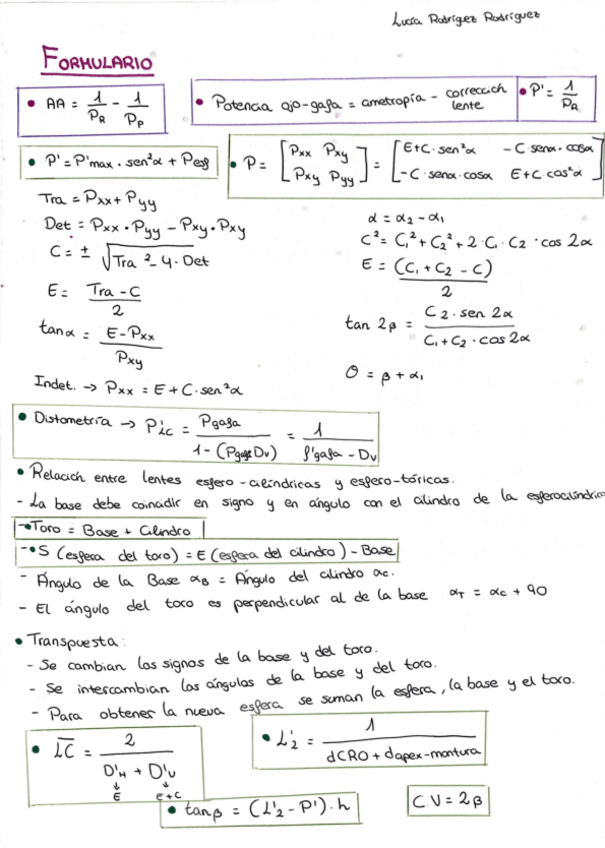 Lucía Rodríguez Rodríguez
FORMULARIO
• AA = 1/PR - 1/PP
• Potencia ojo-gafa = ametropía - corrección lente
• P' = 1/PR
• P' = P'max · sen²α + Pesf
• P = [Pxx Pxy; Pxy Pyy] = [E+C·sen²α -C·senα·cosα; -C·senα·cosα E+C·cos²α]
Tra = Pxx + Pyy
Det = Pxx · Pyy - Pxy · Pxy
C = ± √(Tra² - 4·Det)
E = (Tra - C)/2
tanα = (E - Pxx)/Pxy
Indet. → Pxx = E + C·sen²α
α = α2 - α1
C² = C1² + C2² + 2·C1·C2·cos 2α
E = (C1 + C2 - C)/2
tan 2β = (C2·sen 2α)/(C1 + C2·cos 2α)
θ = β + α1
• Distometría → P'LC = Pgafa/(1-(Pgafa Dv)) = 1/(f'gafa - Dv)
• Relación entre lentes esfero-cilíndricas y esfero-tóricas.
- La base debe coincidir en signo y en ángulo con el cilindro de la esferocilíndrica
-• Toro = Base + Cilindro
-• S (esfera del toro) = E (esfera del cilindro) - Base
- Ángulo de la Base αB = Ángulo del cilindro αc.
- El ángulo del toro es perpendicular al de la base αT = αc + 90
• Transpuesta:
- Se cambian los signos de la base y del toro.
- Se intercambian los ángulos de la base y del toro.
- Para obtener la nueva esfera se suman la esfera, la base y el toro.
• LC = 2/(D'H + D'V)
↓ ↓
E E+C
• L'2 = 1/(dCRO + dapex-montura)
• tanβ = (L'2 - P')·h
C.V = 2β